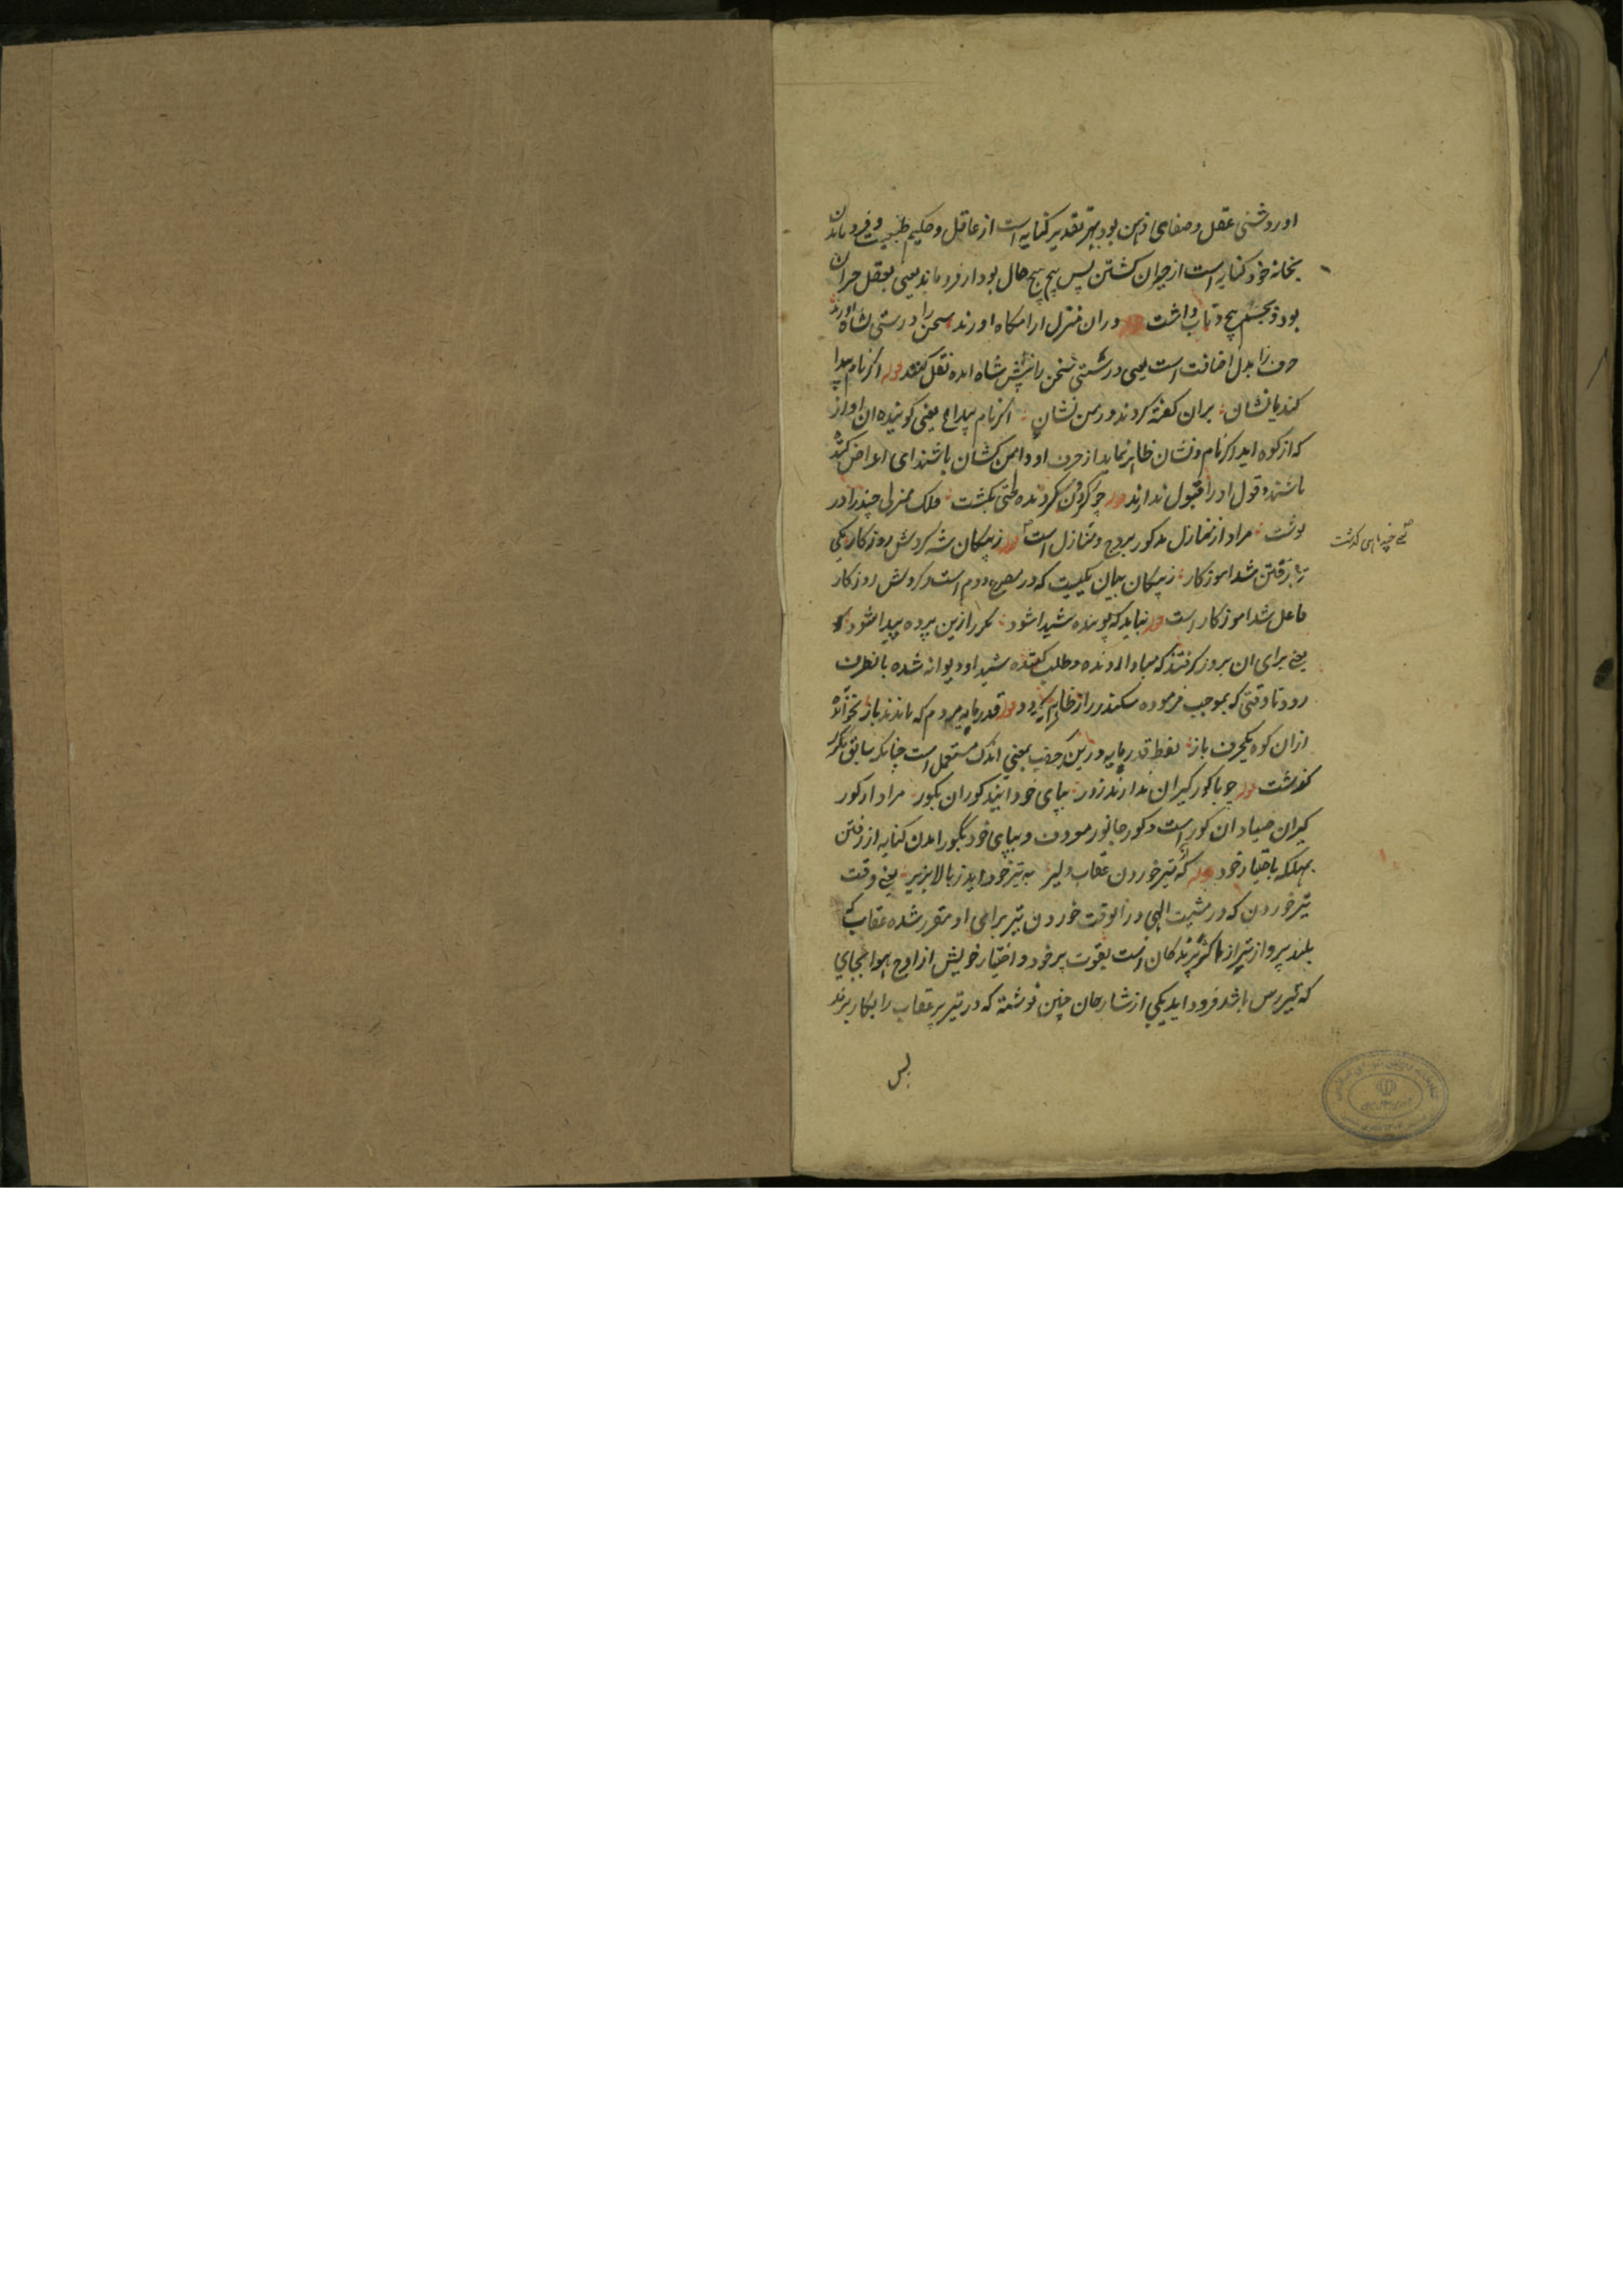 او روشنی عقل و صفای ذهن بود بهر تقدیر کنایه است از عاقل و حکیم طبیعت و فرو ماندن
بخانه خود کنایه است از حیران کشتن پس پیچ پیچ حال بود از فرو ماند یعنی بعقل حیران
بود و بجسم پیچ و تاب داشت قوله دران منزل ارامکاه اورند سخن را درستی بشاه اورند
حرف را بدل اضافت است یعنی درستی سخن را پیش شاه امده نقل کنند قوله اکر نام پیدا
کند یا نشان بران کفته کردند دامن کشان اکر نام پیدا یعنی کوینده ان اواز
که از کوه اید اکر نام و نشان ظاهر نماید از حرف او دامن کشان باشند ای اعراض کننده
باشند و قول او را قبول ندارند قوله چو کردون کردنده لختی بکشت فلک منزلی چند را در
نوشت مراد از منازل مذکور بروج و منازل است قوله زپیکان شه کردش روزکار یکی
را برفتن شد اموزکار زپیکان بیان یکیست که در مصرع دوم است و کردش روزکار
فاعل شد اموزکار است قوله نباید که پوینده شیدا شود مکر راز این پرده پیدا شود
یعنی برای ان بروز کرفتند که مبادا رونده و طلب کننده شیدا و دیوانه شده بانطرف
رود تا وقتی که بموجب فرموده سکندر راز ظاهر کردد قوله قدر مایه مردم که ماندند باز نخوانده
ازان کوه یکحرف باز لفظ قدر مایه درین کتاب بمعنی اندک مستعمل است چنانکه سابق مکرر
کذشت قوله چو با کور کیران ندارند زور بپای خود ایند کوران بکور مراد از کور
کیران صیادان کور است و کور جانور معروف و بپای خود بکور امدن کنایه از رفتن
بهلکه باختیار خود قوله که تیر خوردن عقاب دلیر به تیز خود اید ز بالا بزیر یعنی وقت
تیر خوردن که در مشیت الهی دران وقت خوردن تیر برای او مقرر شده عقاب که
بلند پرواز تر از اکثر پرندکان است بقوت پر خود و اختیار خویش از اوج هوا بجای
که تیر رس باشد فرود اید یکی از شارحان چنین نوشته که در تیر پر عقاب را بکار برند
پس
یعنی چند ماهی کذشت